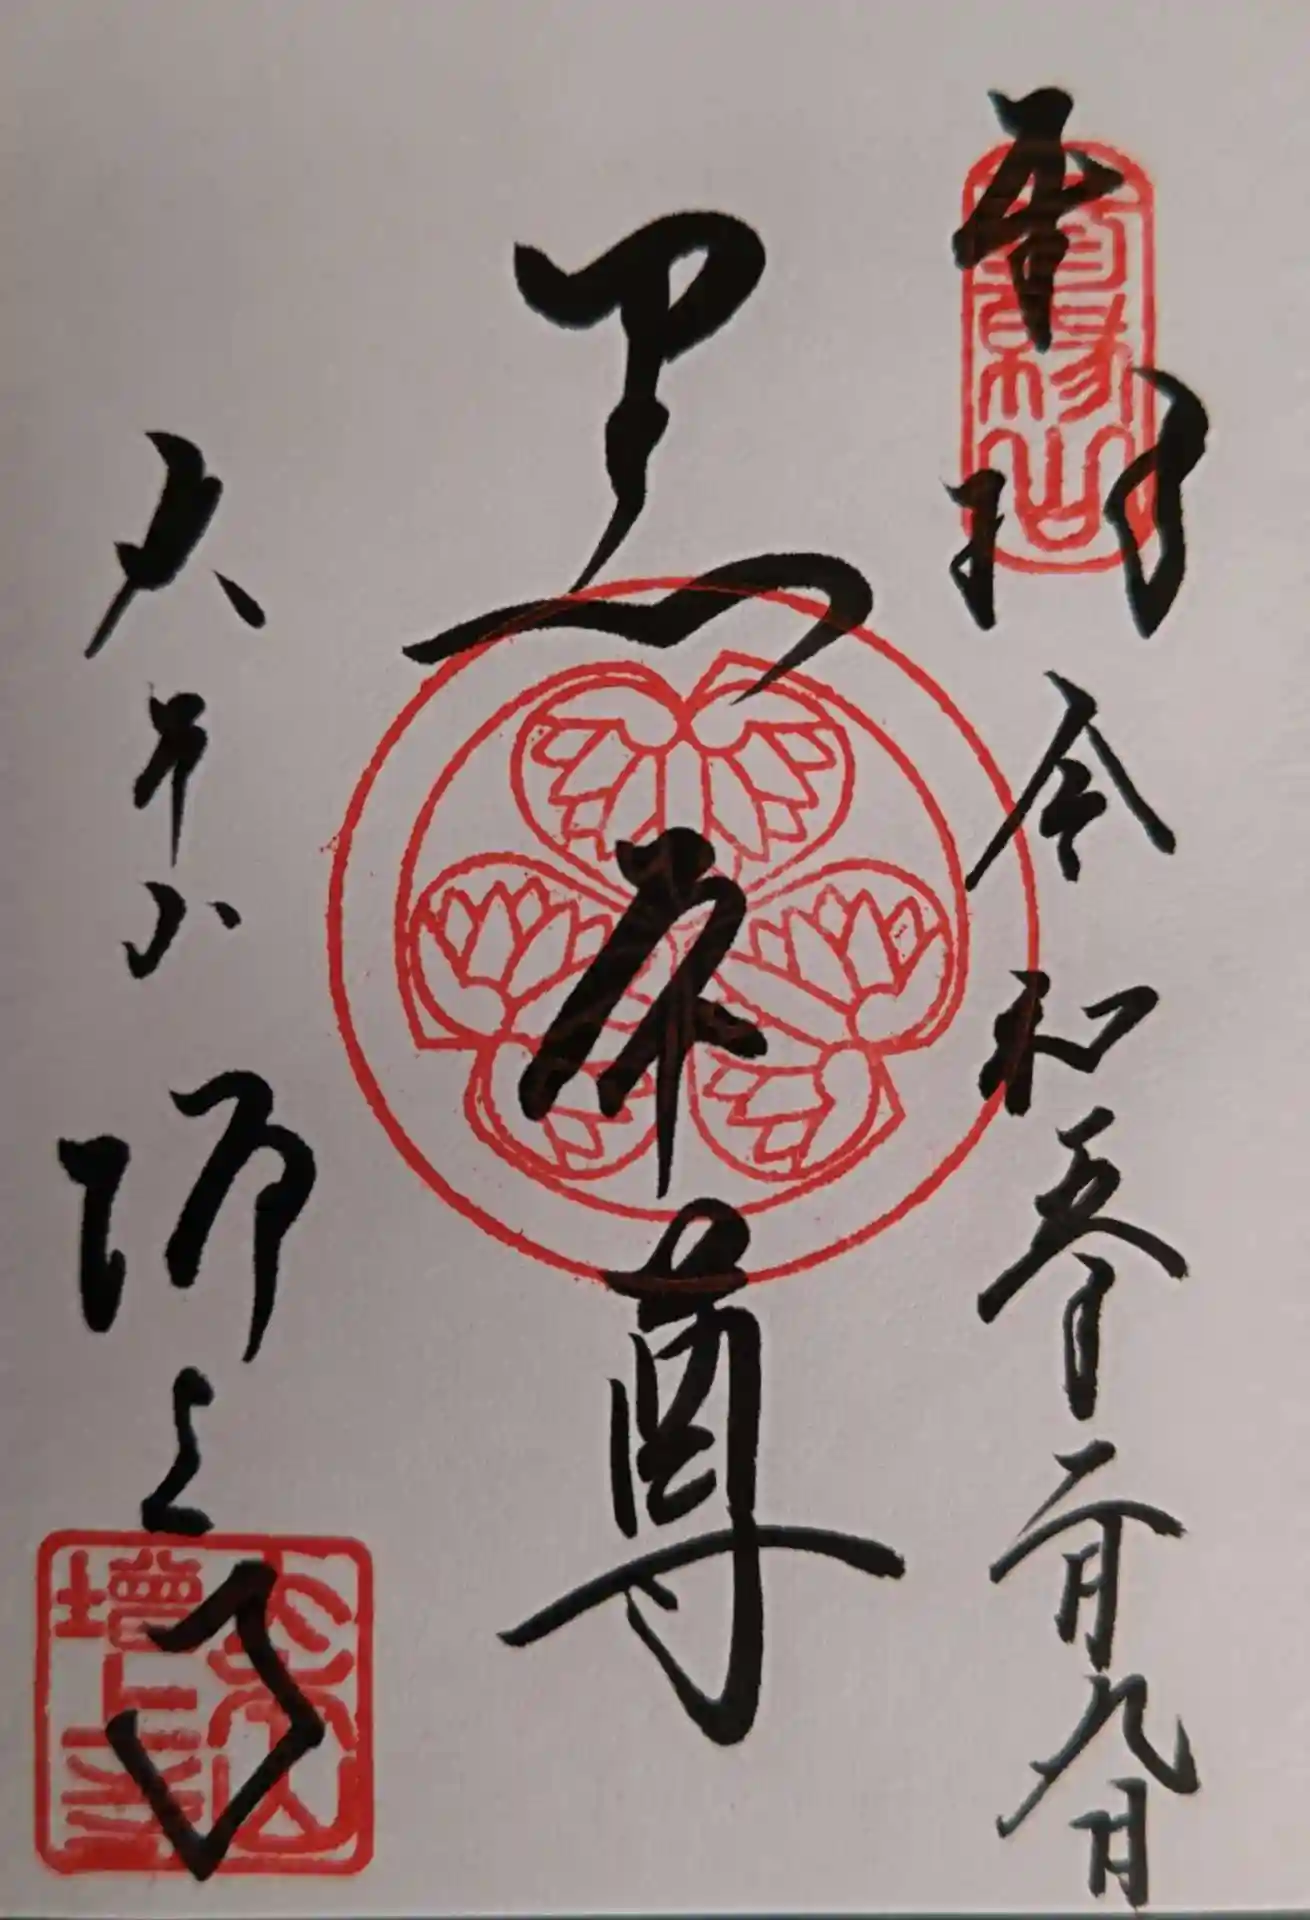 奉拝
令和五年二月九日
黒本尊
大本山
増上寺
大本山
増上寺